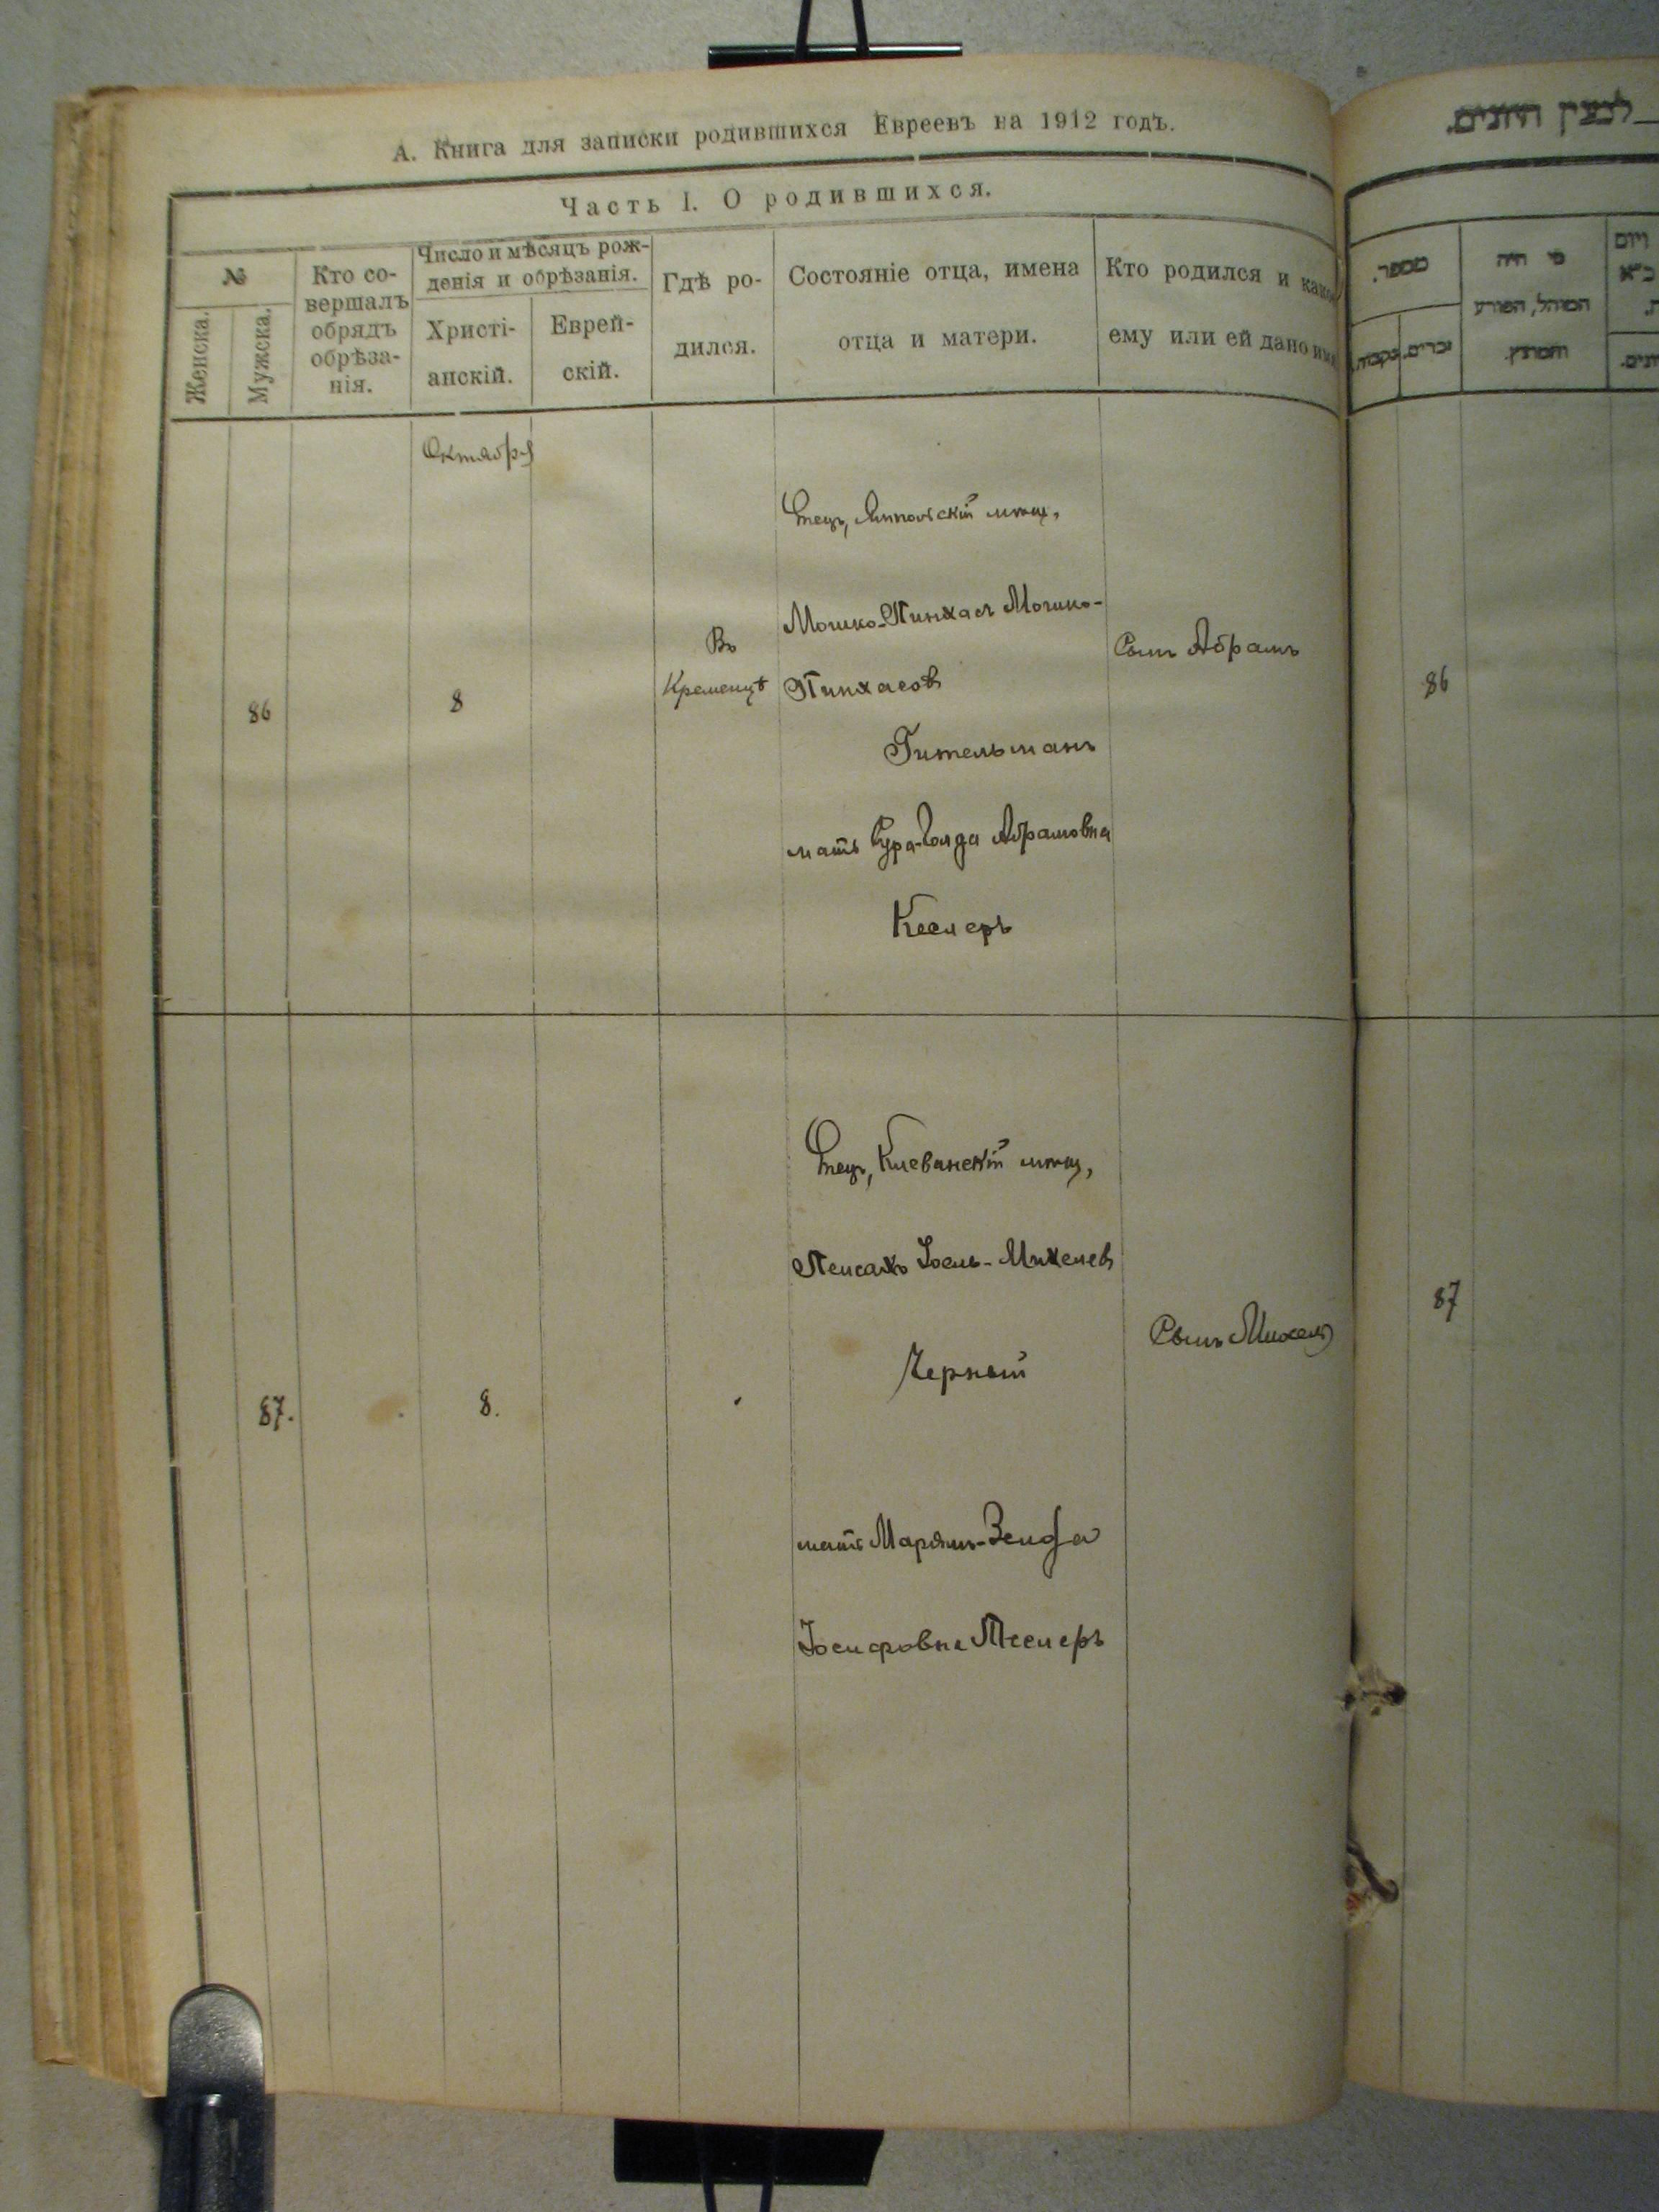 А. Книга для записки родившихся Евреевъ на 1912 годъ.
Часть I. О родившихся.
№
Женска.
Мужска.
Кто со-
вершалъ
обрядъ
обрѣза-
нія.
Число и мѣсяцъ рож-
денія и обрѣзанія.
Христі-
анскій.
Еврей-
скій.
Гдѣ ро-
дился.
Состояніе отца, имена
отца и матери.
Кто родился и какое
ему или ей дано имя
Октября
86
8
Въ
Кременцѣ
Отецъ, Ямпольскій мѣщ,
Мошко-Пинхасъ Мошко-
Пинхасов
Гительманъ
мать Сура-Голда Абрамовна
Кеслеръ
Сынъ Абрамъ
87.
8.
Отецъ, Клеванскій мѣщ,
Пейсахъ Іось-Михелев
Черный
мать Марьям-
Іосифовна
Сынъ Михель
מספר.
זכרים.
נקבות.
מי היה
המוהל, הפורע
והמוצץ.
86
87